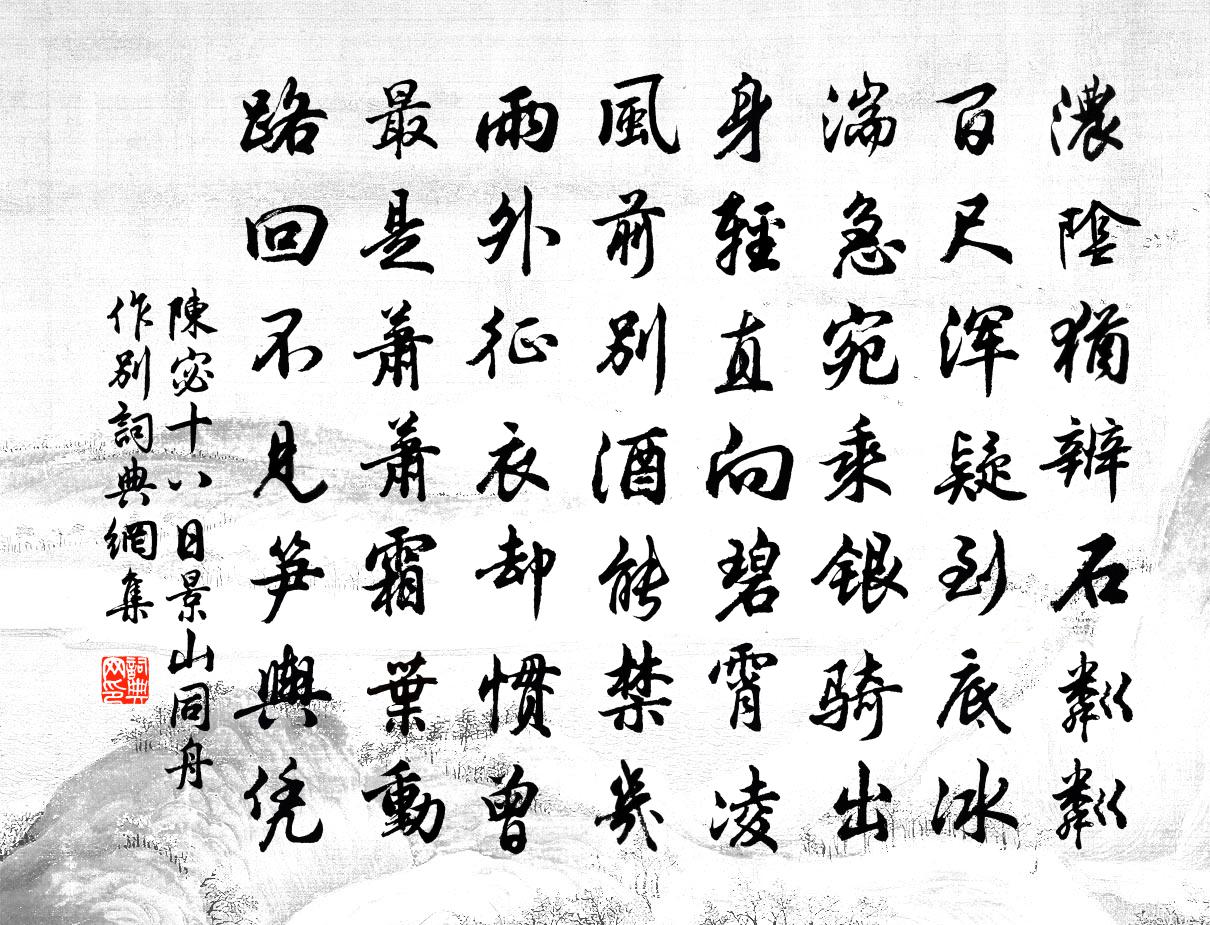 濃陰猶辨石粼粼
百尺渾疑到底冰
湍急宛乘銀騎出
身輕直向碧霄凌
風前別酒能禁幾
雨外征衣却慣曾
最是蕭蕭霜葉動
路回不見笋輿凭
陳宓十八日景山同舟
作別詞典網集
詞典網印